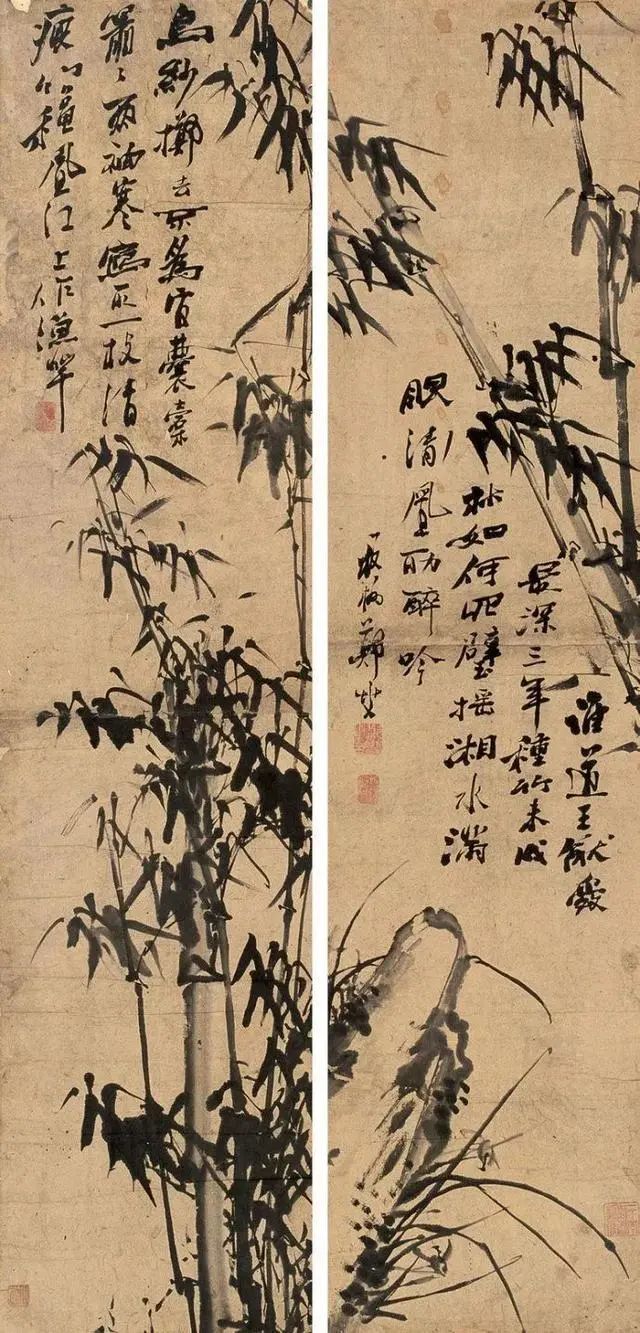 誰道王猷愛
最深三年種竹未成
林如何四壁搖湘水滿
眼清風助醉吟
板橋鄭燮
烏紗擲去不為官囊橐
蕭〻兩袖寒寫取一枝清
瘦竹秋風江上作漁竿